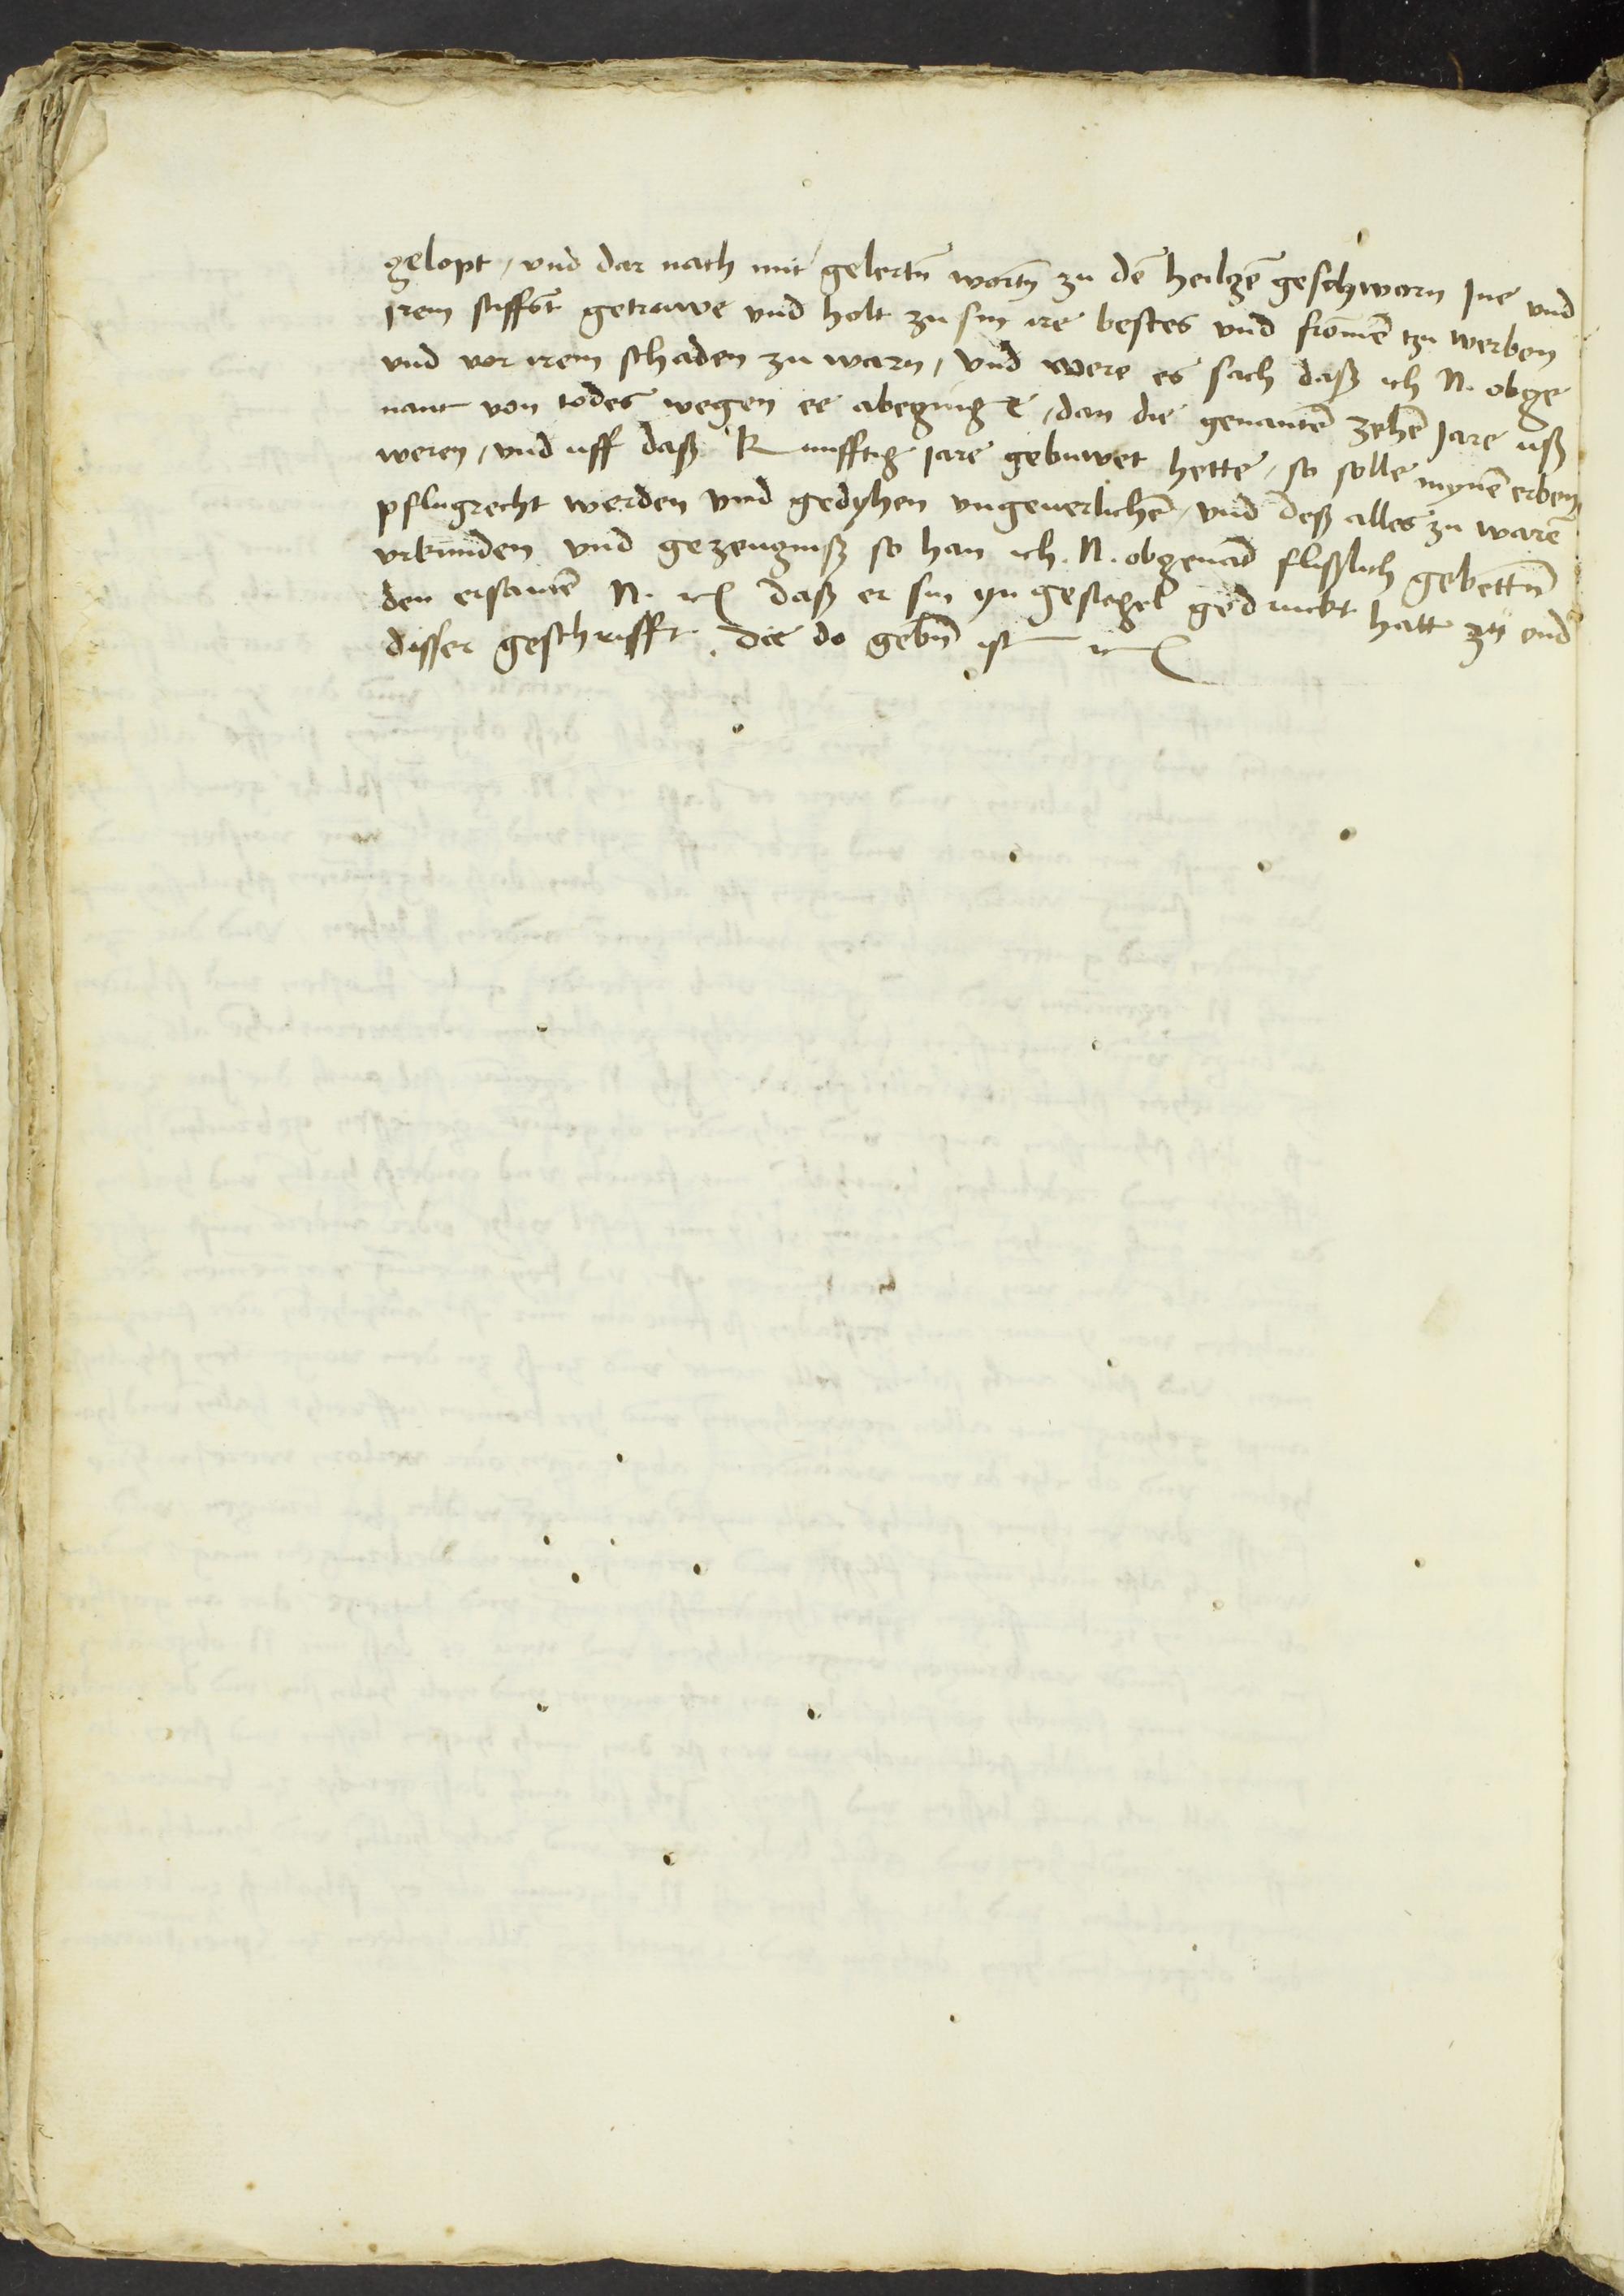 gelopt / vnd dar nach mit gelertn̄ wortn̄ zu dē heilgē geschworn Ine vnd
Jrem stifft getruwe vnd holt zu sin ire bestes vnd fromē tzu werben
vnd vor irem schaden zu warn / vnd were es sach daß ich N. obge
nant von todes wegen ee abeging e / dan die genantē zehē Jare uß
weren / vnd uff daß kunfftig Jare gebuwet hette / so solle mynē erben
pflugrecht werden vnd gedyhen vngeuerlichē / vnd deß alles zu warē
vrkunden vnd gezeugniß so han ich . N . obgenād flißlich gebettn̄
den ersamē N. ꝛc daß er sin yn gesiegel gedruckt hatt zu end
disser geschrifft . die do gebn̄ ist ꝛc